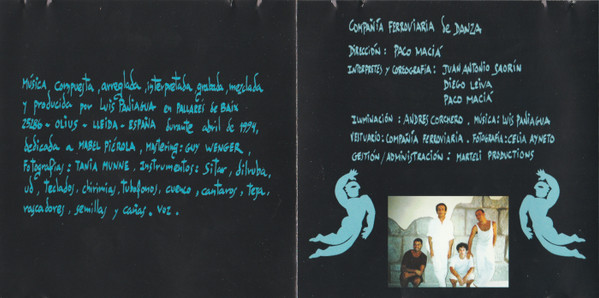 MÚSICA compuesta, arreglada, interpretada, grabada, mezclada
y producida por LUIS PANIAGUA en PALLARÉS DE BAIX
25286 - OLIUS - LLEIDA - ESPAÑA durante abril de 1994,
dedicada a MABEL PIÉROLA, Mastering: GUY WENGER,
Fotografías: TANIA MUNNE. Instrumentos: Sitar, dilruba,
ud, teclados, chirimías, tubofonos, cuenco, cantaros, teja,
rascadores, semillas y cañas. Voz.
COMPAÑÍA FERROVIARIA de DANZA
DIRECCIÓN: PACO MACIÁ
INTERPRETES Y COREOGRAFIA: JUAN ANTONIO SAORÍN
DIEGO LEIVA
PACO MACIÁ
ILUMINACIÓN: ANDRES CORCHERO. MÚSICA: LUIS PANIAGUA
VESTUARIO: COMPAÑÍA FERROVIARIA. FOTOGRAFÍA: CELIA AYNETO
GESTIÓN/ADMINISTRACIÓN: MARTELI PRODUCTIONS